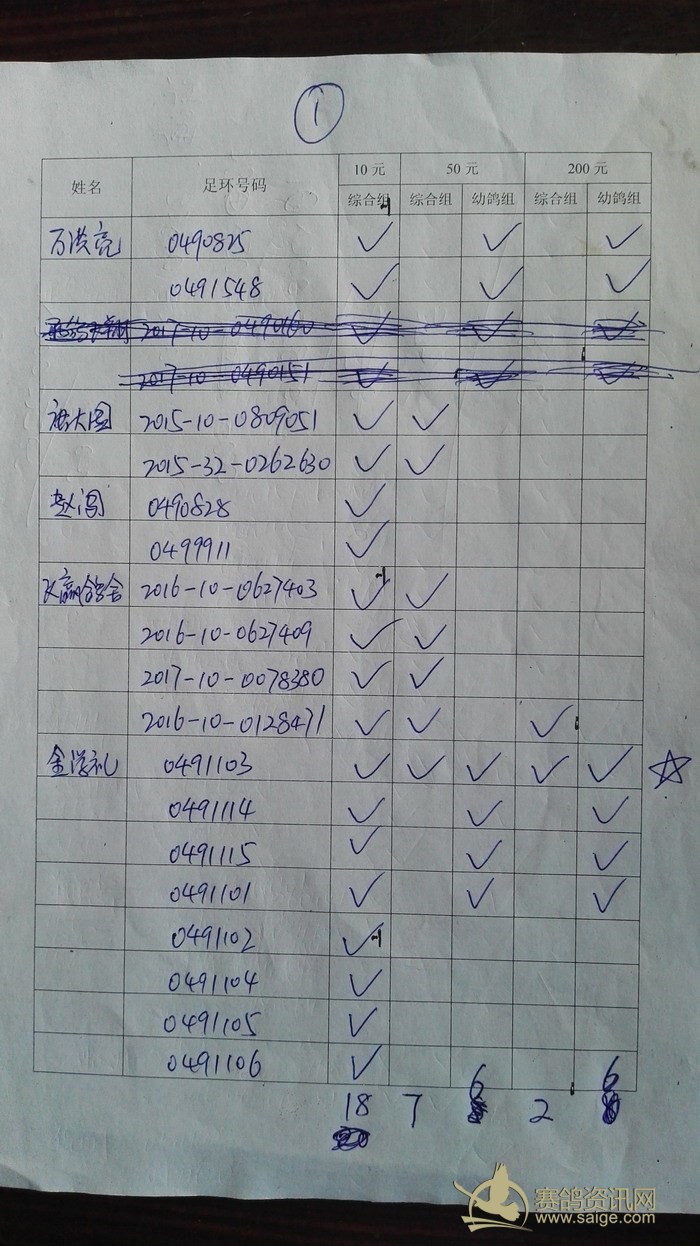 1
姓名 足环号码 10元 50元 200元
综合组 综合组 幼鸽组 综合组 幼鸽组
万洪亮 0490825 ✓ ✓ ✓
0491548 ✓ ✓ ✓
2017-10-0490160 ✓ ✓ ✓
2017-10-0490151 ✓ ✓ ✓
2015-10-0809051 ✓ ✓
2015-32-0262630 ✓ ✓
赵闯 0490828 ✓
0499911 ✓
赢鸽舍 2016-10-0627403 ✓ ✓
2016-10-0627409 ✓ ✓
2017-10-0078380 ✓ ✓
2016-10-0128471 ✓ ✓ ✓
金学礼 0491103 ✓ ✓ ✓ ✓ ✓ ☆
0491114 ✓ ✓ ✓
0491115 ✓ ✓ ✓
0491101 ✓ ✓ ✓
0491102 ✓
0491104 ✓
0491105 ✓
0491106 ✓
18 7 6 2 6
赛鸽资讯网
www.saige.com